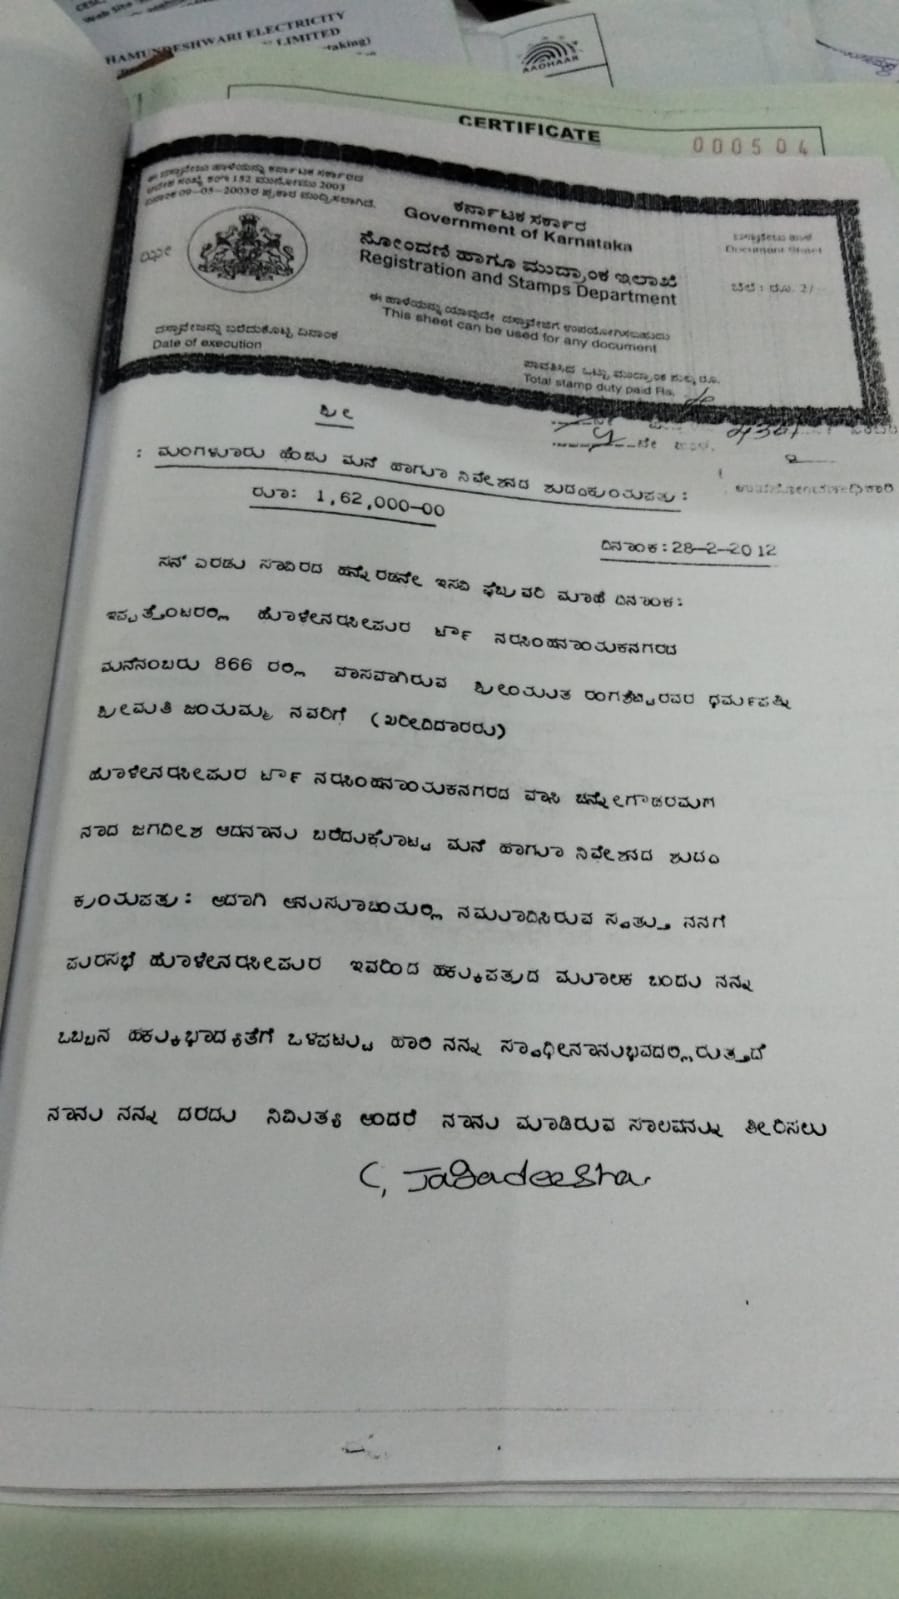 HAMUNDESHWARI ELECTRICITY
LIMITED
taking)
AADHAAR
CERTIFICATE
000504
ಈ ದಸ್ತಾವೇಜು ಹಾಳೆಯನ್ನು ಕರ್ನಾಟಕ ಸರ್ಕಾರದ
ಆದೇಶ ಸಂಖ್ಯೆ ಕಂಇ 152 ಮುನೋಮು 2003
ದಿನಾಂಕ 09-05-2003ರ ಪ್ರಕಾರ ಮುದ್ರಿಸಲಾಗಿದೆ.
ಕರ್ನಾಟಕ ಸರ್ಕಾರ
Government of Karnataka
ನೋಂದಣಿ ಹಾಗೂ ಮುದ್ರಾಂಕ ಇಲಾಖೆ
Registration and Stamps Department
ದಸ್ತಾವೇಜು ಹಾಳೆ
Document Sheet
ಬೆಲೆ : ರೂ. 2/-
ಈ ಹಾಳೆಯನ್ನು ಯಾವುದೇ ದಸ್ತಾವೇಜಿಗೆ ಉಪಯೋಗಿಸಬಹುದು
This sheet can be used for any document
ದಸ್ತಾವೇಜನ್ನು ಬರೆದುಕೊಟ್ಟ ದಿನಾಂಕ
Date of execution
ಪಾವತಿಸಿದ ಒಟ್ಟು ಮುದ್ರಾಂಕ ಶುಲ್ಕ ರೂ.
Total stamp duty paid Rs.
ಶ್ರೀ
: ಮಂಗಳೂರು ಹೆಂಚು ಮನೆ ಹಾಗೂ ನಿವೇಶನದ ಶುದ್ಧಕ್ರಯಪತ್ರ :
ರೂ: 1,62,000-00
ದಿನಾಂಕ:28-2-2012
ಸನ್ ಎರಡು ಸಾವಿರದ ಹನ್ನೆರಡನೇ ಇಸವಿ ಫೆಬ್ರವರಿ ಮಾಹೆ ದಿನಾಂಕ:
ಇಪ್ಪತ್ತೆಂಟರಲ್ಲಿ ಹೊಳೇನರಸೀಪುರ ಟೌನ್ ನರಸಿಂಹನಾಯಕನಗರದ
ಮನೆನಂಬರು 866 ರಲ್ಲಿ ವಾಸವಾಗಿರುವ ಶ್ರೀಯುತ ರಂಗಶೆಟ್ಟರವರ ಧರ್ಮಪತ್ನಿ
ಶ್ರೀಮತಿ ಜಯಮ್ಮ ನವರಿಗೆ (ಖರೀದಿದಾರರು)
ಹೊಳೇನರಸೀಪುರ ಟೌನ್ ನರಸಿಂಹನಾಯಕನಗರದ ವಾಸಿ ಚನ್ನೇಗೌಡರಮಗ
ನಾದ ಜಗದೀಶ ಆದನಾನು ಬರೆದುಕೊಟ್ಟ ಮನೆ ಹಾಗೂ ನಿವೇಶನದ ಶುದ್ಧ
ಕ್ರಯಪತ್ರ: ಅದಾಗಿ ಅನುಸೂಚಿಯಲ್ಲಿ ನಮೂದಿಸಿರುವ ಸ್ವತ್ತು ನನಗೆ
ಪುರಸಭೆ ಹೊಳೇನರಸೀಪುರ ಇವರಿಂದ ಹಕ್ಕುಪತ್ರದ ಮೂಲಕ ಬಂದು ನನ್ನ
ಒಬ್ಬನ ಹಕ್ಕುಭಾದ್ಯತೆಗೆ ಒಳಪಟ್ಟು ಹಾಲಿ ನನ್ನ ಸ್ವಾಧೀನಾನುಭವದಲ್ಲಿರುತ್ತದೆ
ನಾನು ನನ್ನ ದರದು ನಿಮಿತ್ಯ ಅಂದರೆ ನಾನು ಮಾಡಿರುವ ಸಾಲವನ್ನು ತೀರಿಸಲು
C, Jagadeesha